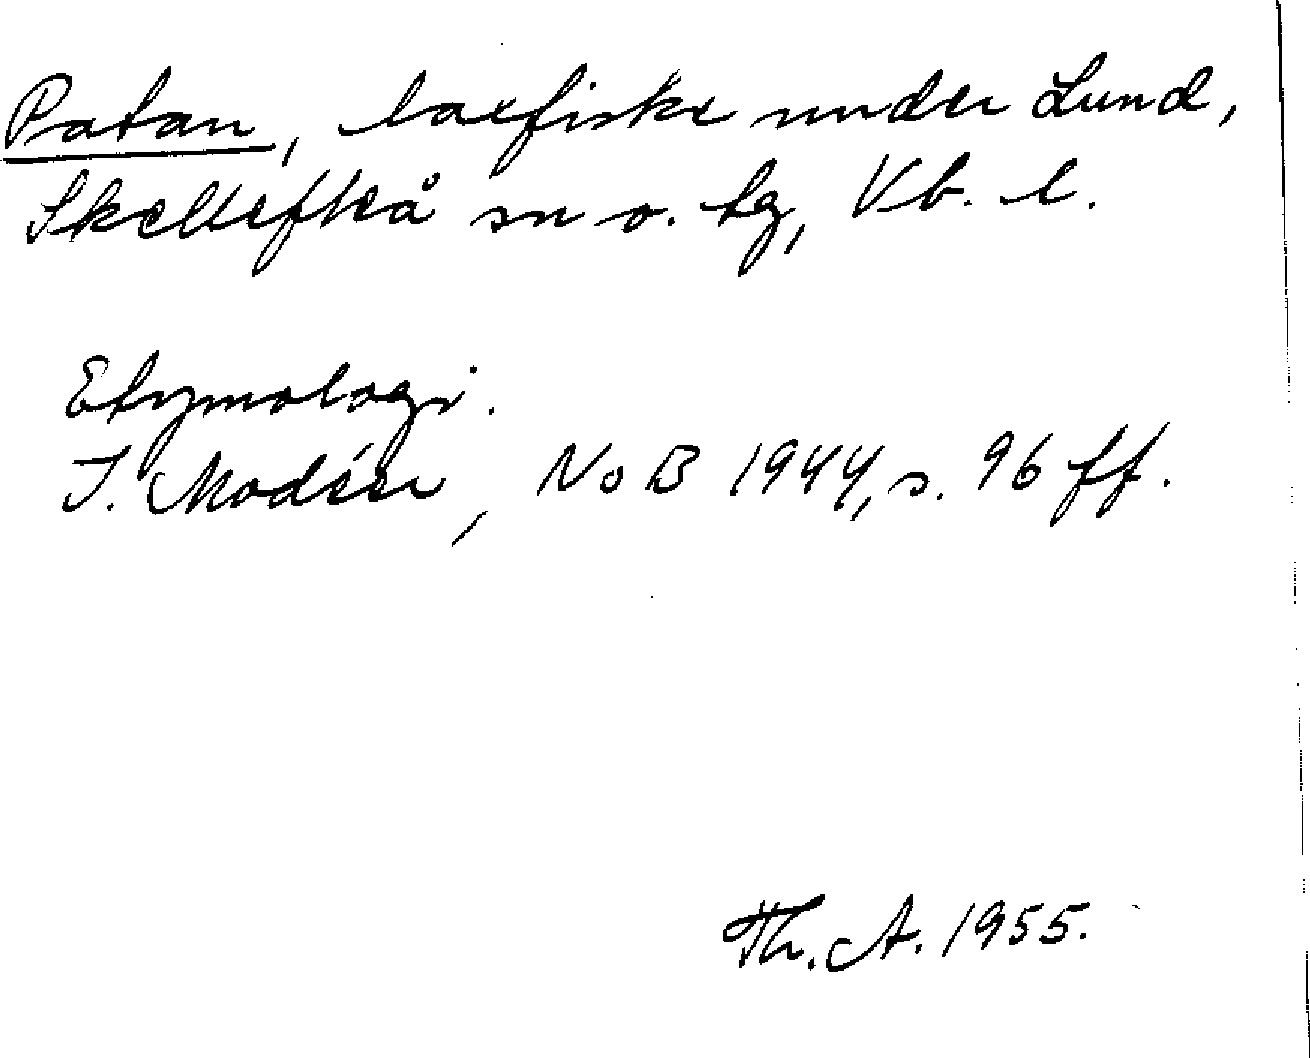 Patan, laxfiske under Lund,
Skellefteå sn o. tg, Vb. l.
Etymologi.
I. Modéer, NoB 1944, s. 96 ff.
Th. A. 1955.